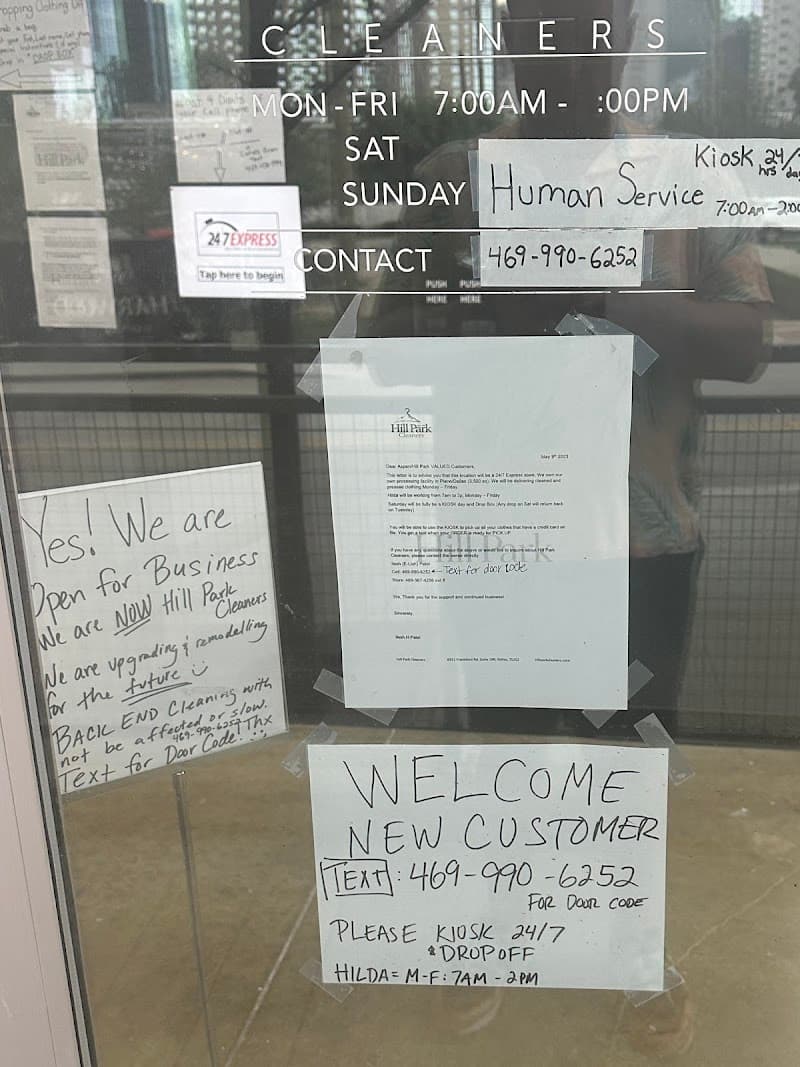 CLEANERS
MON-FRI 7:00AM - :00PM
SAT
SUNDAY
Kiosk 24/7
hrs day
Human Service 7:00AM-2:00
CONTACT 469-990-6252
PUSH PUSH
HERE HERE
Last 4 Digits
your Cell phone
24 7 EXPRESS
Tap here to begin
Hill Park
Cleaners
May 9th 2023
Dear Aspen/Hill Park VALUED Customers,
This letter is to advise you that this location will be a 24/7 Express store. We own our
own processing facility in Plano/Dallas We will be delivering cleaned and
pressed clothing Monday – Friday
Hilda will be working from 7am to 2p, Monday – Friday
Saturday will be fully be a KIOSK day and Drop Box (Any drop on Sat will return back
on Tuesday)
You will be able to use the KIOSK to pick up all your clothes that have a credit card on
file. You get a text when your ORDER is ready for PICK UP
If you have any questions about the above or would like to inquire about Hill Park
Cleaners, please contact the owner directly
Hill Park
Cell: 469-990-6252 Text for door code
Yes, Thank you for the support and continued business!
Sincerely,
Hill Park Cleaners
Yes! We are
Open for Business
We are NOW Hill Park
Cleaners
We are upgrading & remodelling
for the future
BACK END Cleaning with
not be affected or slow.
469-990-6252
Text for Door Code! Thx
WELCOME
NEW CUSTOMER
TEXT: 469-990-6252
FOR DOOR CODE
PLEASE KIOSK 24/7
& DROP OFF
HILDA = M-F: 7AM - 2PM